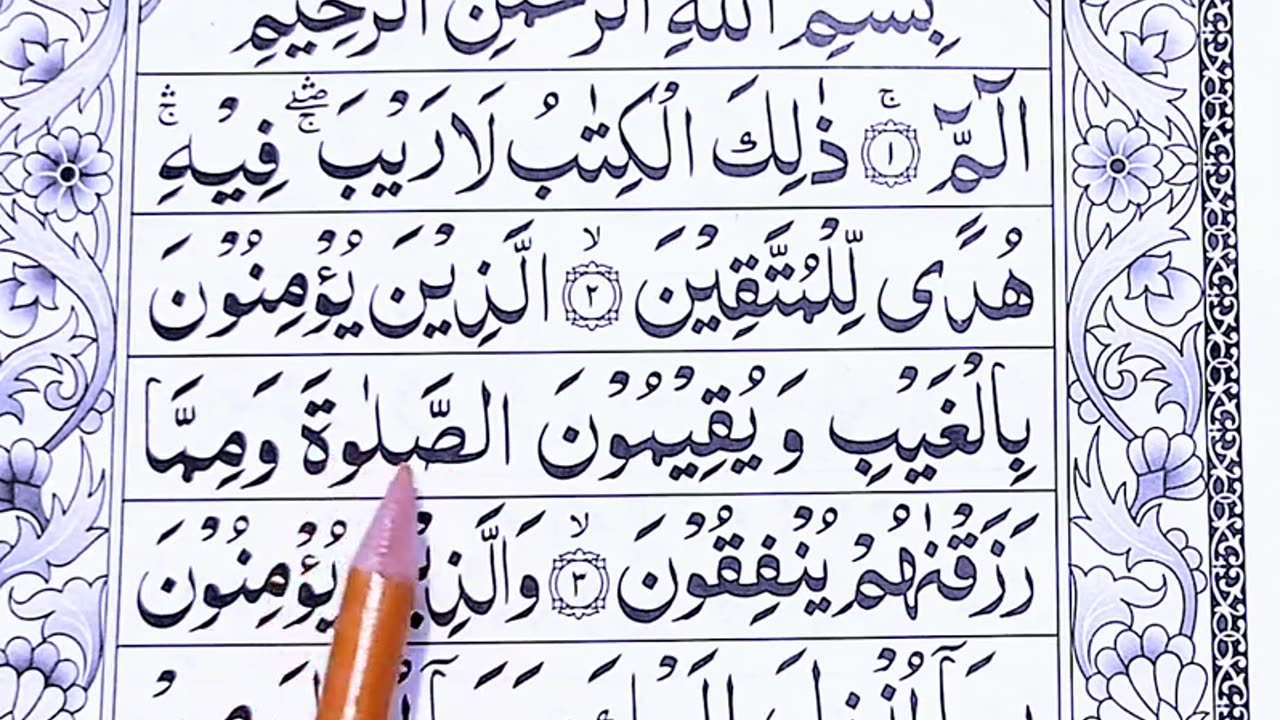 بِسْمِ اللّٰهِ الرَّحْمٰنِ الرَّحِيْمِ
الٓمّٓ ۚ﴿۱﴾ ذٰلِكَ الْكِتٰبُ لَا رَيْبَ ۛۖۚ فِيْهِ ۛۚ
هُدًى لِّلْمُتَّقِيْنَ ۙ﴿۲﴾ الَّذِيْنَ يُؤْمِنُوْنَ
بِالْغَيْبِ وَ يُقِيْمُوْنَ الصَّلٰوةَ وَ مِمَّا
رَزَقْنٰهُمْ يُنْفِقُوْنَ ۙ﴿۳﴾ وَالَّذِيْنَ يُؤْمِنُوْنَ